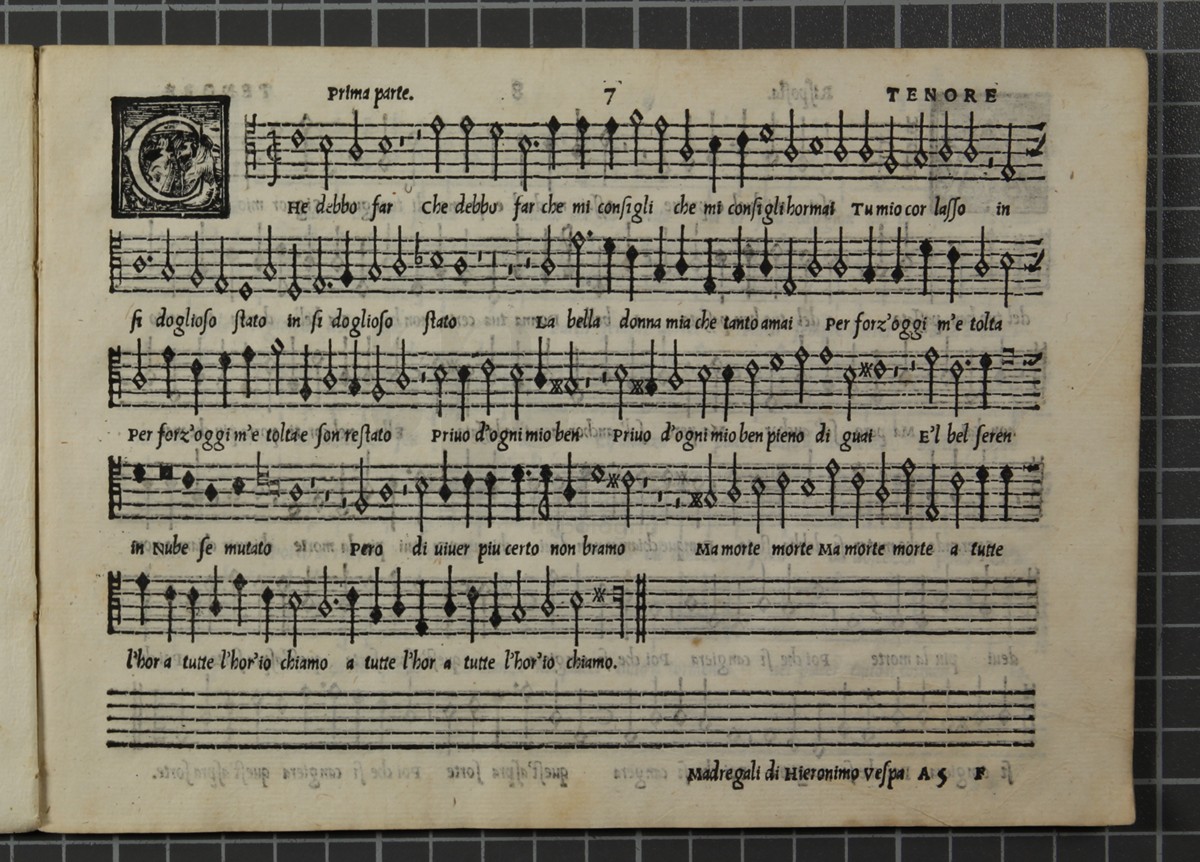 Prima parte. 7 TENORE
CHe debbo far Che debbo far che mi conſigli che mi conſigli hormai Tu mio cor laſſo in
ſi doglioſo ſtato in ſi doglioſo ſtato La bella donna mia che tanto amai Per forz'oggi m'e tolta
Per forz'oggi m'e tolta e ſon reſtato Priuo d'ogni mio ben Priuo d'ogni mio ben pieno di guai E'l bel ſeren
in Nube ſe mutato Pero di uiuer piu certo non bramo Ma morte morte Ma morte morte a tutte
l'hor a tutte l'hor'io chiamo a tutte l'hor a tutte l'hor'io chiamo.
Madregali di Hieronimo Veſpa A 5 F